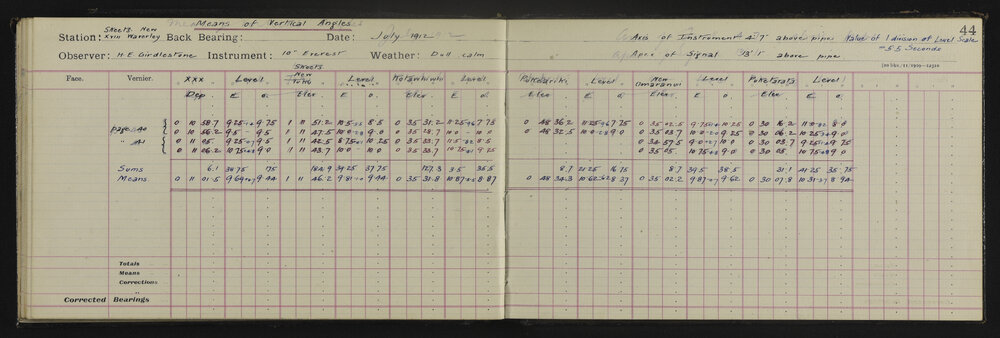 Means of Vertical Angles
44
Sheets New
Station: XXIII Waverley Back Bearing: Date: July 1912
Axis of Instrument 4.7 above pipe Value of 1 division of Level Scale
= 5.5 Seconds
Observer: H.E Girdlestone Instrument: 10" Everest Weather: Dull calm
Apex of Signal above pipe
Sheets
Face. Vernier. XXX Level New Level Level Pukeariki Level New Level Puketarata Level
Dep E o. Elev E o. Elev E o. Elev E o. Elev E o. Elev E o.
0 10 58.7 9 25 9 75 1 11 51.2 10.5 8.5 0 35 31.2 11 25 7 75 0 48 36.2 11 25 6.75 0 35 02.5 9 75 10 25 0 30 16.2 11 8.0
page 40 0 10 56.2 9.5 - 9.5 1 11 47.5 10.0 9.0 0 35 28.7 10.0 - 10.0 0 48 32.5 10.0 9.0 0 35 03.7 10.0 9 25 0 30 06.2 10 25 9.0
" 41 0 11 05. 9 25 9.5 1 11 42.5 8 75 10 25 0 35 33.7 11.5 8.5 0 34 57.5 9.0 10.0 0 30 03.7 9 25 9 75
0 11 06.2 10 75 9.0 1 11 43.7 10.0 10.0 0 35 33.7 10 75 9 25 0 35 05. 10 75 9.0 0 30 05. 10 75 9.0
Sums 6.1 38 75 75 184.9 39 25 37 75 127.3 35.5 8.7 21 25 16 75 8.7 39.5 38.5 31.1 41 25 35 75
Means 0 11 01.5 9 69 9 44 1 11 46.2 9 81 9 44 0 35 31.8 10 87 8 87 0 48 34.3 10 62 8 37 0 35 02.2 9 87 9 62 0 30 07.8 10 31 8 94
Totals
Means
Corrections
Corrected Bearings